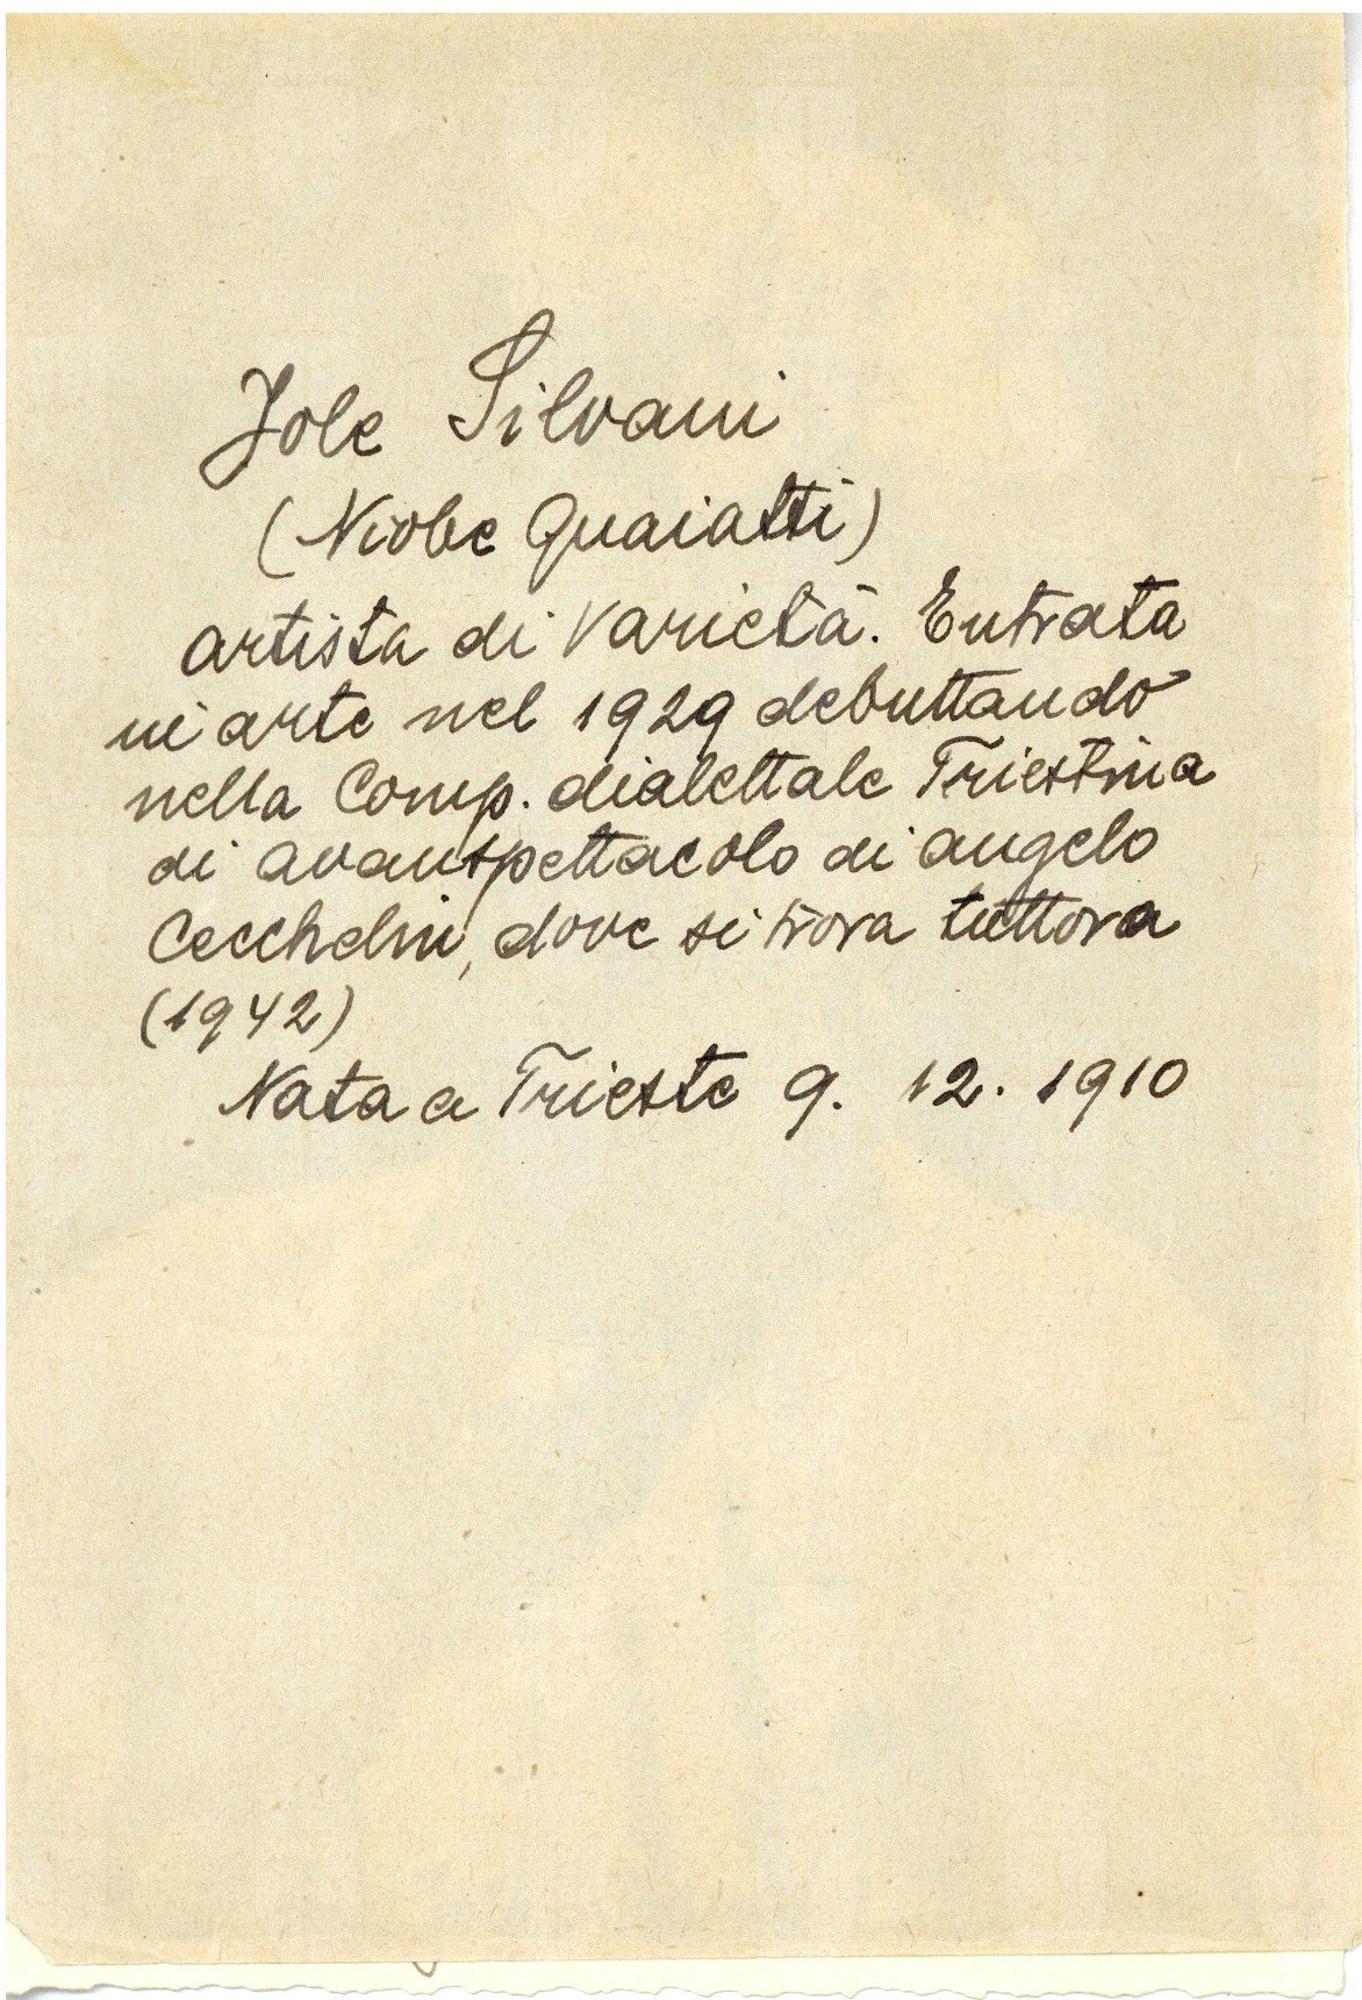 Jole Silvani
(Niobe Quaiatti)
artista di Varietà. Entrata
in arte nel 1929 debuttando
nella Comp. dialettale Triestina
di avanspettacolo di angelo
Cecchelin, dove si trova tuttora
(1942)
Nata a Trieste 9. 12. 1910